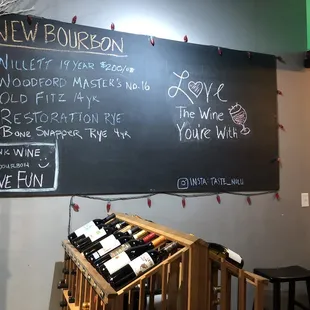 NEW BOURBON
WILLETT 19 YEAR $200/OZ
WOODFORD MASTER'S NO. 16
OLD FITZ 14 YR
RESTORATION RYE
BONE SNAPPER RYE 4YR
WINE
BOURBON
FUN
LOVE
THE WINE
YOU'RE WITH
INSTA: TASTE_NULU